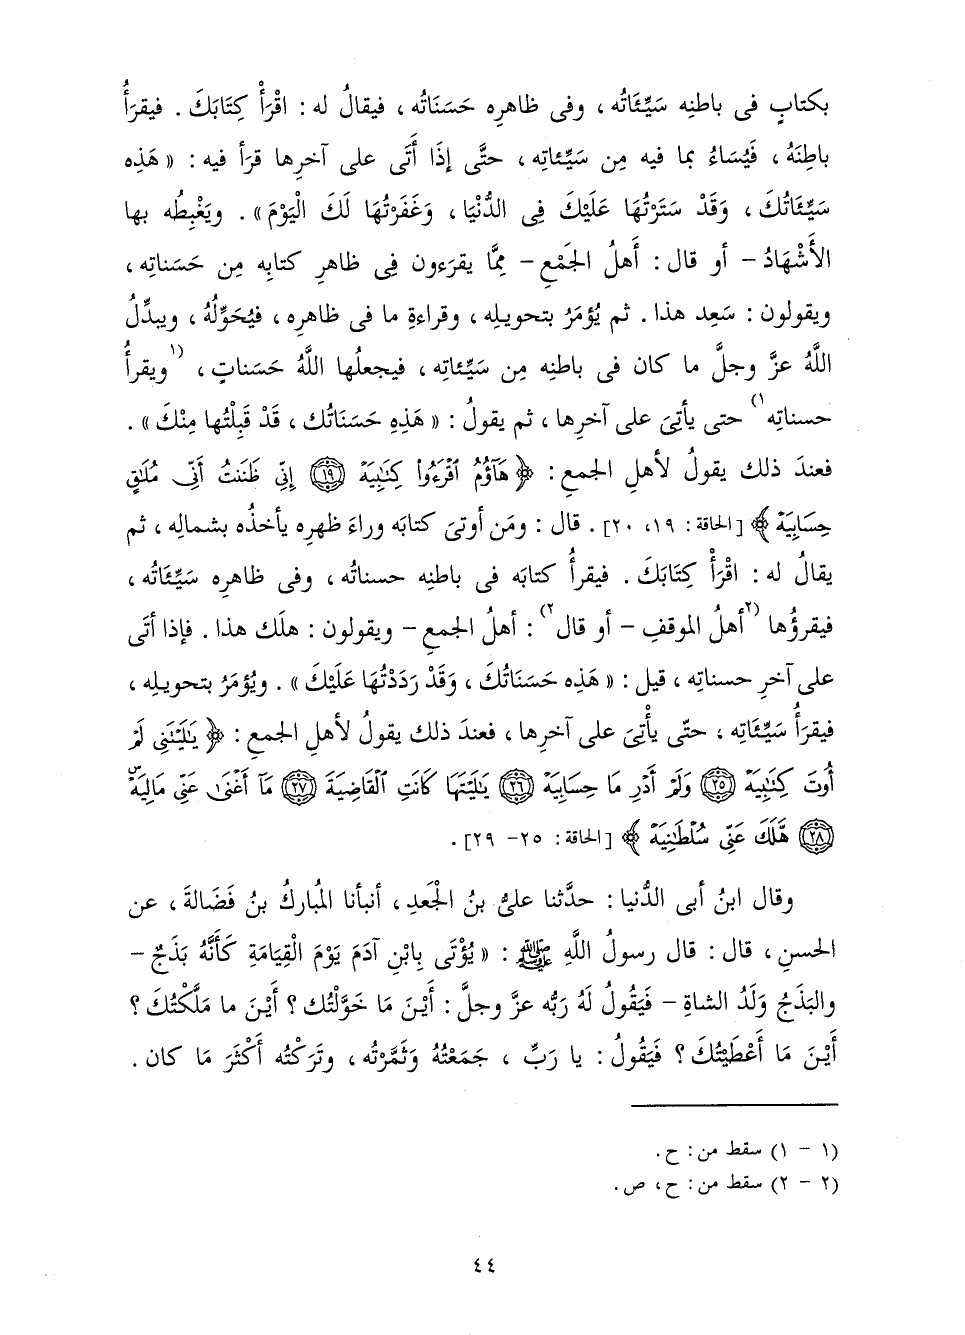 بكتابٍ فى باطنِه سَيِّئاتُه ، وفى ظاهرِه حَسَنَاتُه ، فيقالُ له : اقْرَأْ كِتَابَكَ . فيقرَأُ
باطِنَهُ ، فَيُسَاءُ بما فيه مِن سَيِّئاتِه ، حتَّى إذَا أَتَى على آخرِها قرَأ فيه : « هَذِه
سَيِّئَاتُكَ ، وَقَدْ سَتَرْتُهَا عَلَيْكَ فِى الدُّنْيَا ، وَغَفَرْتُهَا لَكَ الْيَوْمَ » . ويَغْبِطُه بها
الأَشْهَادُ – أو قال : أَهلُ الجَمْعِ – مِمَّا يقرَءون فِى ظاهرِ كتابِه مِن حَسَناتِه ،
ويقولون : سَعِد هذا . ثم يُؤمَرُ بتحويلِه ، وقراءةِ ما فى ظاهرِه ، فيُحَوِّلُهُ ، ويبدِّلُ
اللَّهُ عزَّ وجلَّ ما كان فى باطنِه مِن سَيِّئاتِه ، فيجعلُها اللَّهُ حَسَناتٍ ، (١ويقرأُ
حسناتِه١) حتى يأتِىَ على آخرِها ، ثم يقولُ : « هَذِهِ حَسَنَاتُك ، قَدْ قَبِلْتُها مِنْكَ » .
فعندَ ذلك يقولُ لأهلِ الجمعِ : ﴿ هَآؤُمُ ٱقْرَءُوا۟ كِتَٰبِيَهْ ﴿١٩﴾ إِنِّى ظَنَنتُ أَنِّى مُلَٰقٍ
حِسَابِيَهْ ﴾ [الحاقة : ١٩، ٢٠] . قال : ومَن أوتىَ كتابَه وراءَ ظهرِه يأخذُه بشمالِه ، ثم
يقالُ له : اقْرَأْ كِتَابَكَ . فيقرأُ كتابَه فى باطنِه حسناتُه ، وفى ظاهرِه سَيِّئَاتُه ،
فيقرؤُها (٢أهلُ الموقفِ – أو قال٢) : أهلُ الجمعِ – ويقولون : هلَك هذا . فإذا أتَى
على آخرِ حسناتِه ، قيل : « هَذِه حَسَنَاتُكَ ، وَقَدْ رَدَدْتُهَا عَلَيْكَ » . ويُؤمَرُ بتحويلِه ،
فيقرَأُ سَيِّئَاتِه ، حتّى يأْتِىَ على آخرِها ، فعندَ ذلك يقولُ لأهلِ الجمعِ : ﴿ يَٰلَيْتَنِى لَمْ
أُوتَ كِتَٰبِيَهْ ﴿٢٥﴾ وَلَمْ أَدْرِ مَا حِسَابِيَهْ ﴿٢٦﴾ يَٰلَيْتَهَا كَانَتِ ٱلْقَاضِيَةَ ﴿٢٧﴾ مَآ أَغْنَىٰ عَنِّى مَالِيَهْۜ
﴿٢٨﴾ هَّلَكَ عَنِّى سُلْطَٰنِيَهْ ﴾ [الحاقة : ٢٥– ٢٩] .
وقال ابنُ أبى الدُّنيا : حدَّثنا علىُّ بنُ الجَعدِ ، أنبأنا المُباركُ بنُ فَضَالةَ ، عن
الحسنِ ، قال : قال رسولُ اللَّهِ ﷺ : « يُؤْتَى بِابْنِ آدَمَ يَوْمَ الْقِيَامَةِ كَأَنَّهُ بَذَجٌ –
والبَذَجُ وَلَدُ الشاةِ – فَيَقُولُ لَهُ رَبُّه عزَّ وجلَّ : أَيْنَ مَا خَوَّلْتُك ؟ أَيْنَ ما مَلَّكْتُكَ ؟
أَيْنَ مَا أَعْطَيْتُكَ ؟ فَيَقُولُ : يا رَبِّ ، جَمَعْتُهُ وَثَمَّرْتُه ، وتَرَكْتُه أَكْثَرَ مَا كان .
(١ – ١) سقط من : ح .
(٢ – ٢) سقط من : ح ، ص .
٤٤